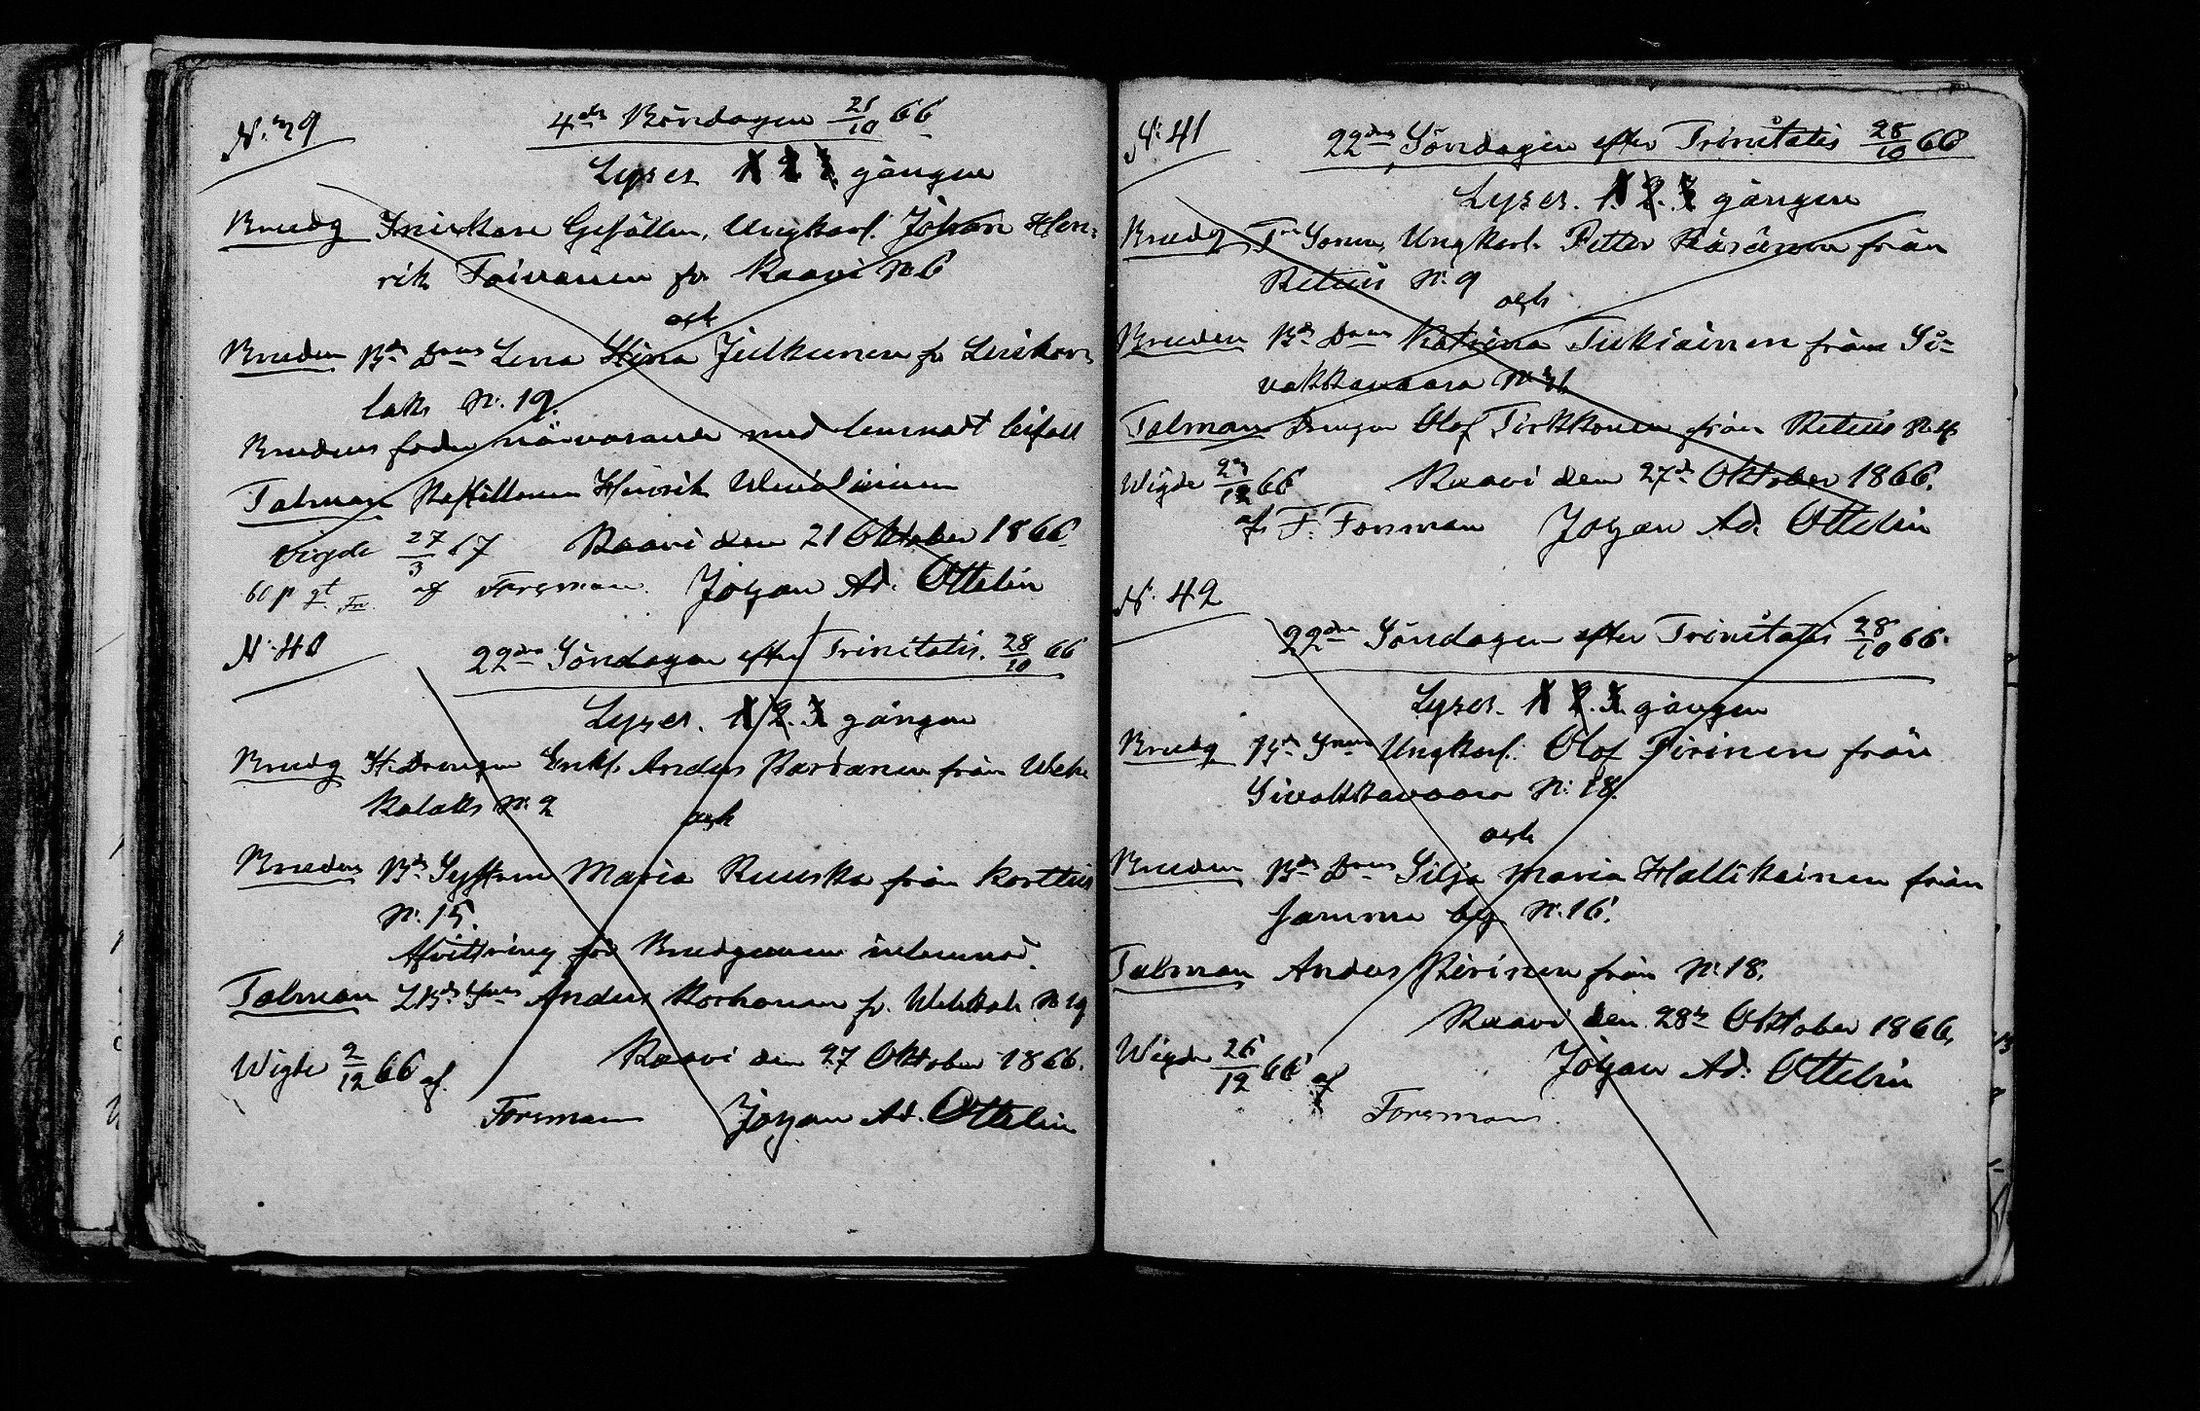 N: 39
4de Böndagen 21/10 66
Lyses 1 2 3 gången
Brudg Snickare Gesällen, Ungkarl. Johan Hen-
rik Toivanen fr. Kaavi No 6
och
Bruden Bde Dotr Lena Stina Julkunen fr Leiskon
laks No. 19.
Brudens fader närvarande med lemnadt bifall
Talman Henrik
Vigde 27/3 67 Kaavi den 21 Oktober 1866
60 p af Forsman. Johan Ad. Ottelin
N: 40
22dra Söndagen efter Trinitatis. 28/10 66
Lyses. 1 2. 3 gången
Brudg Drengen Enkl. Anders Partanen från Weh-
kalaks No 2
och
Bruden Bds Systern Maria Ruuska från Korttis
No. 15.
Afvittring för Brudgummen inlemnad.
Talman Anders Korhonen fr. Wehkal. No 19
Wigde 2/12 66 af. Kaavi den 27 Oktober 1866.
Forsman Johan Ad. Ottelin
N: 41
22dra Söndagen efter Trinitatis 28/10 66
Lyses. 1. 2. 3 gången
Brudg Sonen, Ungkarl. Petter Räsänen från
Retuis No. 9
och
Bruden Bde Dotr Katrina Tukiainen från Si-
vakkavaara No 31
Talman Drengen Olof Pirkkonen från Retuis
Wigde 2/12 66 Kaavi den 27de Oktober 1866.
af F. Forsman Johan Ad. Ottelin
N. 42
22dra Söndagen efter Trinitatis 28/10 66.
Lyses. 1 2. 3. gången
Brudg Bde Sonen Ungkarl. Olof Pirinen från
Sivakkavaara No: 18.
och
Bruden Bde Dotr Silja Maria Hallikainen från
samma by No. 16.
Talman Anders Pirinen från No 18.
Kaavi den 28de Oktober 1866.
Wigde 26/12 66 af Johan Ad. Ottelin
Forsman